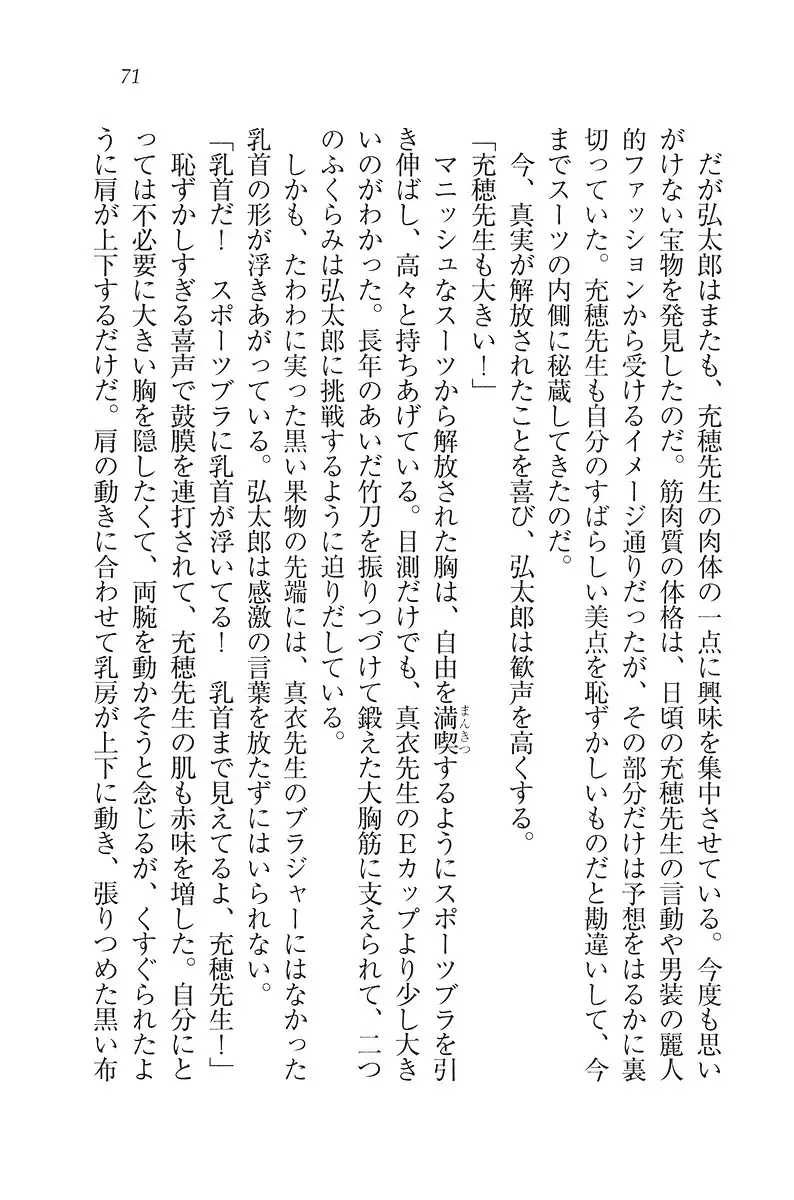 71
だが弘太郎はまたも、充穂先生の肉体の一点に興味を集中させている。今度も思い
がけない宝物を発見したのだ。筋肉質の体格は、日頃の充穂先生の言動や男装の麗人
的ファッションから受けるイメージ通りだったが、その部分だけは予想をはるかに裏
切っていた。充穂先生も自分のすばらしい美点を恥ずかしいものだと勘違いして、今
までスーツの内側に秘蔵してきたのだ。
今、真実が解放されたことを喜び、弘太郎は歓声を高くする。
「充穂先生も大きい！」
マニッシュなスーツから解放された胸は、自由を満喫するようにスポーツブラを引
まんきつ
き伸ばし、高々と持ちあげている。目測だけでも、真衣先生のEカップより少し大き
いのがわかった。長年のあいだ竹刀を振りつづけて鍛えた大胸筋に支えられて、二つ
のふくらみは弘太郎に挑戦するように迫りだしている。
しかも、たわわに実った黒い果物の先端には、真衣先生のブラジャーにはなかった
乳首の形が浮きあがっている。弘太郎は感激の言葉を放たずにはいられない。
「乳首だ！　スポーツブラに乳首が浮いてる！　乳首まで見えてるよ、充穂先生！」
恥ずかしすぎる喜声で鼓膜を連打されて、充穂先生の肌も赤味を増した。自分にと
っては不必要に大きい胸を隠したくて、両腕を動かそうと念じるが、くすぐられたよ
うに肩が上下するだけだ。肩の動きに合わせて乳房が上下に動き、張りつめた黒い布